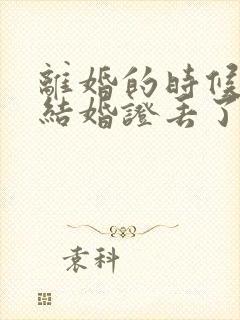 離婚的時候
結婚證丢了
袁科